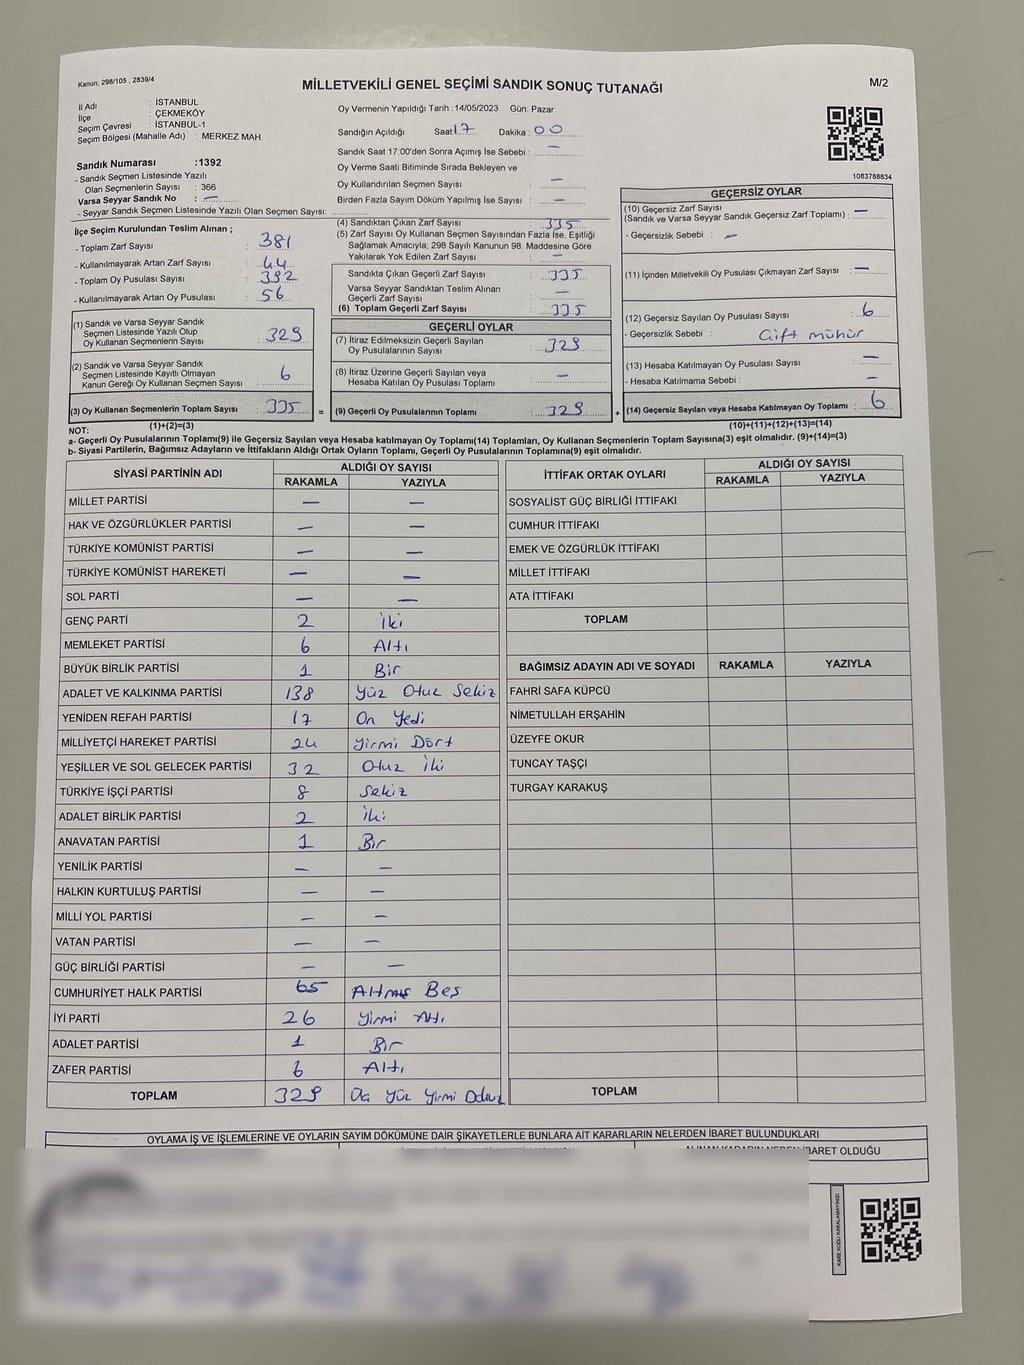 Kanun: 298/105 , 2839/4
MİLLETVEKİLİ GENEL SEÇİMİ SANDIK SONUÇ TUTANAĞI
M/2
İl Adı : İSTANBUL
İlçe : ÇEKMEKÖY
Seçim Çevresi : İSTANBUL-1
Seçim Bölgesi (Mahalle Adı) : MERKEZ MAH.
Oy Vermenin Yapıldığı Tarih :14/05/2023 Gün: Pazar
Sandığın Açıldığı Saat 17 Dakika : 00
Sandık Saat 17:00'den Sonra Açımış İse Sebebi : —
Oy Verme Saati Bitiminde Sırada Bekleyen ve
Oy Kullandırılan Seçmen Sayısı : —
Birden Fazla Sayım Döküm Yapılmış İse Sayısı : —
1083788834
Sandık Numarası :1392
- Sandık Seçmen Listesinde Yazılı
Olan Seçmenlerin Sayısı : 366
Varsa Seyyar Sandık No : —
- Seyyar Sandık Seçmen Listesinde Yazılı Olan Seçmen Sayısı:
İlçe Seçim Kurulundan Teslim Alınan ;
- Toplam Zarf Sayısı : 381
- Kullanılmayarak Artan Zarf Sayısı : 44
- Toplam Oy Pusulası Sayısı : 392
- Kullanılmayarak Artan Oy Pusulası : 56
(1) Sandık ve Varsa Seyyar Sandık
Seçmen Listesinde Yazılı Olup
Oy Kullanan Seçmenlerin Sayısı : 329
(2) Sandık ve Varsa Seyyar Sandık
Seçmen Listesinde Kayıtlı Olmayan
Kanun Gereği Oy Kullanan Seçmen Sayısı : 6
(3) Oy Kullanan Seçmenlerin Toplam Sayısı : 335 =
(1)+(2)=(3)
(4) Sandıktan Çıkan Zarf Sayısı : 335
(5) Zarf Sayısı Oy Kullanan Seçmen Sayısından Fazla İse, Eşitliği
Sağlamak Amacıyla; 298 Sayılı Kanunun 98. Maddesine Göre
Yakılarak Yok Edilen Zarf Sayısı : —
Sandıkta Çıkan Geçerli Zarf Sayısı : 335
Varsa Seyyar Sandıktan Teslim Alınan
Geçerli Zarf Sayısı : —
(6) Toplam Geçerli Zarf Sayısı : 335
GEÇERLİ OYLAR
(7) İtiraz Edilmeksizin Geçerli Sayılan
Oy Pusulalarının Sayısı : 329
(8) İtiraz Üzerine Geçerli Sayılan veya
Hesaba Katılan Oy Pusulası Toplamı : —
(9) Geçerli Oy Pusulalarının Toplamı : 329 +
GEÇERSİZ OYLAR
(10) Geçersiz Zarf Sayısı
(Sandık ve Varsa Seyyar Sandık Geçersiz Zarf Toplamı) : —
- Geçersizlik Sebebi : —
(11) İçinden Milletvekili Oy Pusulası Çıkmayan Zarf Sayısı : —
(12) Geçersiz Sayılan Oy Pusulası Sayısı : 6
- Geçersizlik Sebebi : Çift mühür
(13) Hesaba Katılmayan Oy Pusulası Sayısı : —
- Hesaba Katılmama Sebebi : —
(14) Geçersiz Sayılan veya Hesaba Katılmayan Oy Toplamı : 6
(10)+(11)+(12)+(13)=(14)
NOT:
a- Geçerli Oy Pusulalarının Toplamı(9) ile Geçersiz Sayılan veya Hesaba katılmayan Oy Toplamı(14) Toplamları, Oy Kullanan Seçmenlerin Toplam Sayısına(3) eşit olmalıdır. (9)+(14)=(3)
b- Siyasi Partilerin, Bağımsız Adayların ve İttifakların Aldığı Ortak Oyların Toplamı, Geçerli Oy Pusulalarının Toplamına(9) eşit olmalıdır.
SİYASİ PARTİNİN ADI ALDIĞI OY SAYISI
RAKAMLA YAZIYLA
MİLLET PARTİSİ — —
HAK VE ÖZGÜRLÜKLER PARTİSİ — —
TÜRKİYE KOMÜNİST PARTİSİ — —
TÜRKİYE KOMÜNİST HAREKETİ — —
SOL PARTİ — —
GENÇ PARTİ 2 İki
MEMLEKET PARTİSİ 6 Altı
BÜYÜK BİRLİK PARTİSİ 1 Bir
ADALET VE KALKINMA PARTİSİ 138 Yüz Otuz Sekiz
YENİDEN REFAH PARTİSİ 17 On Yedi
MİLLİYETÇİ HAREKET PARTİSİ 24 Yirmi Dört
YEŞİLLER VE SOL GELECEK PARTİSİ 32 Otuz iki
TÜRKİYE İŞÇİ PARTİSİ 8 Sekiz
ADALET BİRLİK PARTİSİ 2 iki
ANAVATAN PARTİSİ 1 Bir
YENİLİK PARTİSİ — —
HALKIN KURTULUŞ PARTİSİ — —
MİLLİ YOL PARTİSİ — —
VATAN PARTİSİ — —
GÜÇ BİRLİĞİ PARTİSİ — —
CUMHURİYET HALK PARTİSİ 65 Altmış Beş
İYİ PARTİ 26 Yirmi Altı
ADALET PARTİSİ 1 Bir
ZAFER PARTİSİ 6 Altı
TOPLAM 329 Yüz Yirmi
İTTİFAK ORTAK OYLARI ALDIĞI OY SAYISI
RAKAMLA YAZIYLA
SOSYALİST GÜÇ BİRLİĞİ İTTİFAKI
CUMHUR İTTİFAKI
EMEK VE ÖZGÜRLÜK İTTİFAKI
MİLLET İTTİFAKI
ATA İTTİFAKI
TOPLAM
BAĞIMSIZ ADAYIN ADI VE SOYADI RAKAMLA YAZIYLA
FAHRİ SAFA KÜPCÜ
NİMETULLAH ERŞAHİN
ÜZEYFE OKUR
TUNCAY TAŞÇI
TURGAY KARAKUŞ
TOPLAM
OYLAMA İŞ VE İŞLEMLERİNE VE OYLARIN SAYIM DÖKÜMÜNE DAİR ŞİKAYETLERLE BUNLARA AİT KARARLARIN NELERDEN İBARET BULUNDUKLARI
İBARET OLDUĞU
KARE KODU KARALAMAYINIZ!